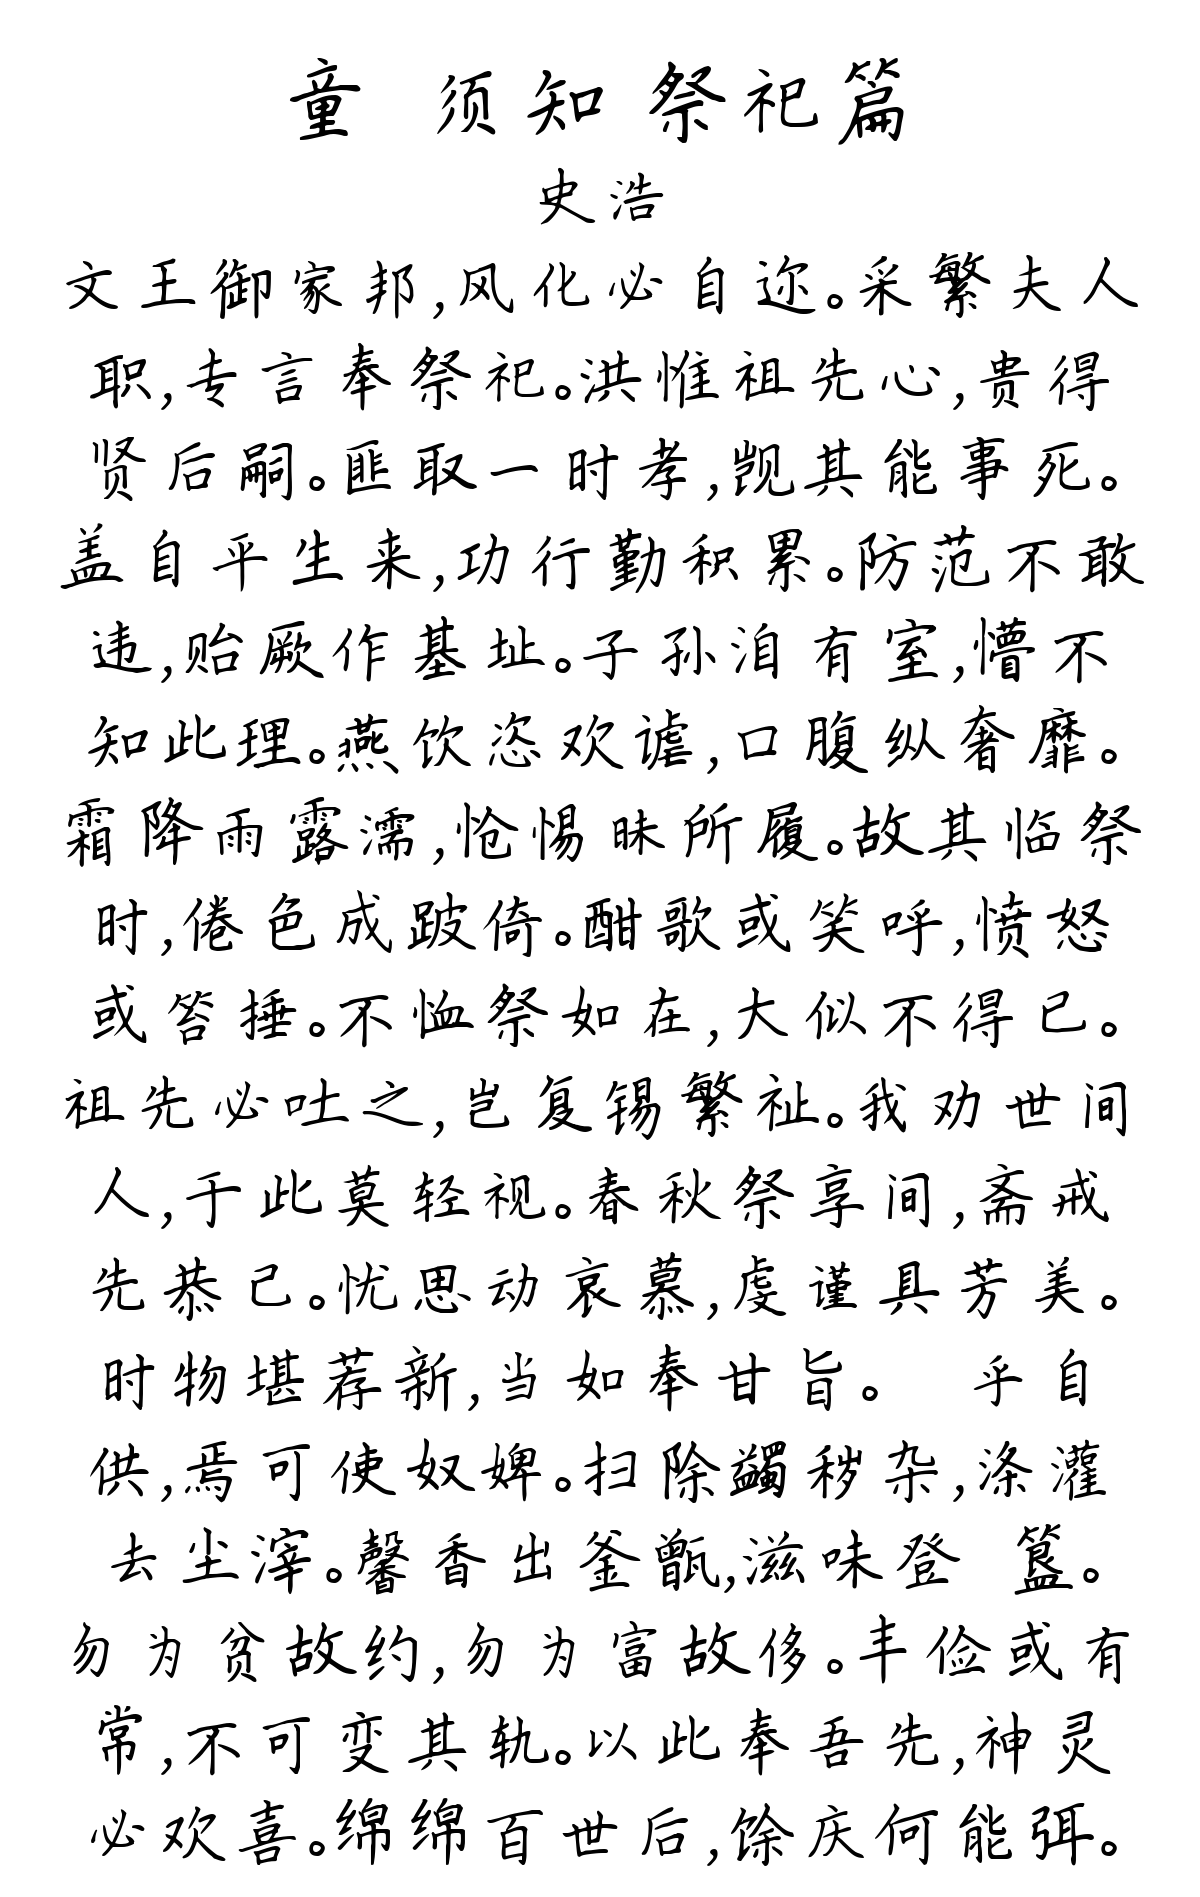 童 须知 祭祀篇
史浩
文王御家邦,风化必自迩。采繁夫人
职,专言奉祭祀。洪惟祖先心,贵得
贤后嗣。匪取一时孝,觊其能事死。
盖自平生来,功行勤积累。防范不敢
违,贻厥作基址。子孙洎有室,懵不
知此理。燕饮恣欢谑,口腹纵奢靡。
霜降雨露濡,怆惕昧所履。故其临祭
时,倦色成跛倚。酣歌或笑呼,愤怒
或笞捶。不恤祭如在,大似不得已。
祖先必吐之,岂复锡繁祉。我劝世间
人,于此莫轻视。春秋祭享间,斋戒
先恭己。忧思动哀慕,虔谨具芳美。
时物堪荐新,当如奉甘旨。 乎自
供,焉可使奴婢。扫除蠲秽杂,涤灌
去尘滓。馨香出釜甑,滋味登 簋。
勿为贫故约,勿为富故侈。丰俭或有
常,不可变其轨。以此奉吾先,神灵
必欢喜。绵绵百世后,馀庆何能弭。